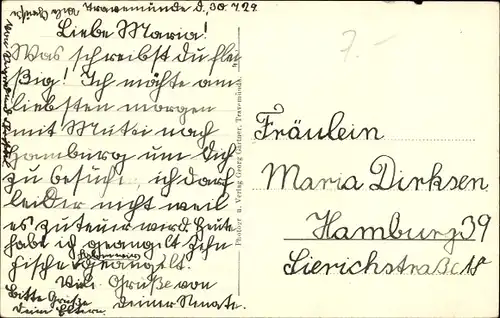 Travemünde d. 30.7.29
Liebe Maria!
Was schreibst du flei
ßig! Ich möchte am
liebsten morgen
mit Mutti nach
Hamburg um dich
zu besuch, ich darf
leider nicht weil
es zu teuer wird. Heute
habe ich geangelt. Zehn
Fische geangelt.
Viele Grüße von
deiner Renate.
Bitte Grüße
dein Eltern.
Photogr. u. Verlag Georg Gärtner, Travemünde.
7.-
Fräulein
Maria Dirksen
Hamburg 39
Sierichstraße 18